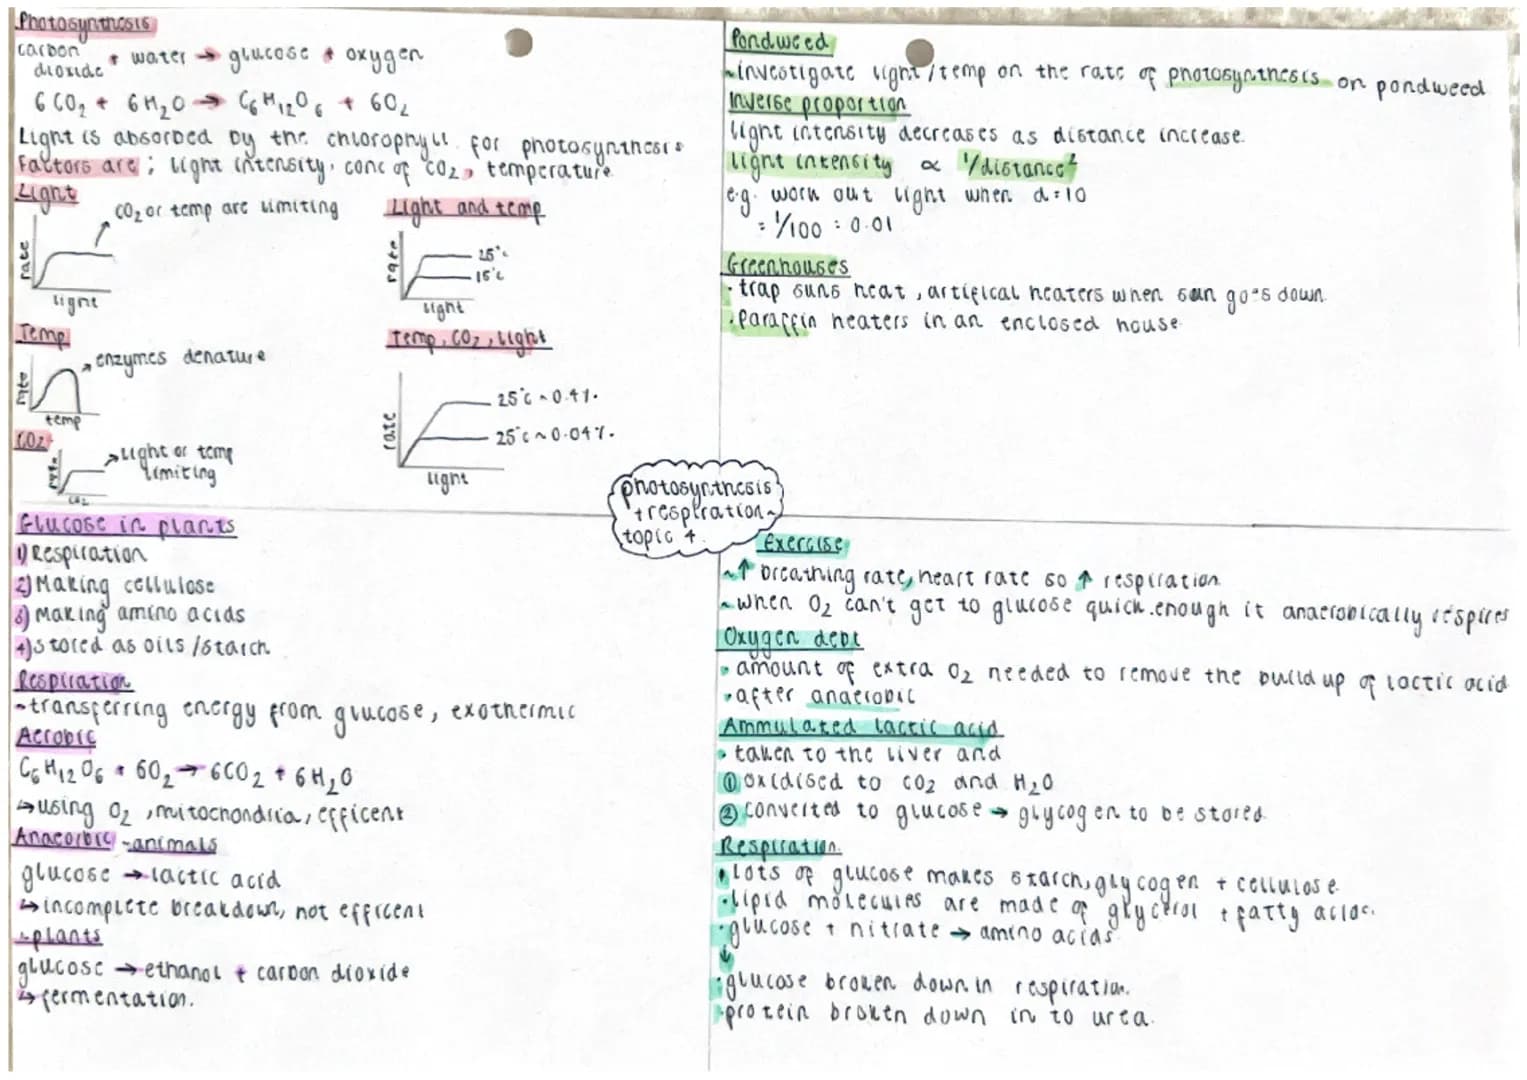 Photosynthesis
carbon dioxide + water → glucose + oxygen
6CO₂ + 6H₂O → C₆H₁₂O₆ + 6O₂
Light is absorbed by the chlorophyll for photosynthesis
Factors are; light intensity, conc of CO₂, temperature
Light
CO₂ or temp are limiting
rate
light
Light and temp
rate
25°c
15°c
light
Temp
enzymes denature
rate
temp
Temp, CO₂, Light
rate
25°c ~ 0.4%
25°c ~ 0.04%
light
CO₂
light or temp
limiting
rate
CO₂
Pondweed
~investigate light/temp on the rate of photosynthesis on pondweed
Inverse proportion
light intensity decreases as distance increase.
light intensity ∝ 1/distance²
e.g. work out light when d=10
= 1/100 = 0.01
Greenhouses
·trap suns heat, artifical heaters when sun goes down
·paraffin heaters in an enclosed house
photosynthesis
+respiration~
topic 4.
Glucose in plants
1) Respiration
2) Making cellulose
3) Making amino acids
4) stored as oils/starch
Respiration
~transferring energy from glucose, exothermic
Aerobic
C₆H₁₂O₆ + 6O₂ → 6CO₂ + 6H₂O
↳using O₂, mitochondria, efficent
Anaerobic -animals
glucose → lactic acid
↳incomplete breakdown, not efficent
-plants
glucose → ethanol + carbon dioxide
↳fermentation.
Exercise
~↑ breathing rate, heart rate so ↑ respiration
~when O₂ can't get to glucose quick enough it anaerobically respires
Oxygen debt
·amount of extra O₂ needed to remove the build up of lactic acid
·after anaerobic
Ammulated lactic acid
·taken to the liver and
① oxidised to CO₂ and H₂O
② converted to glucose → glycogen to be stored
Respiration.
·Lots of glucose makes starch, glycogen + cellulose.
·lipid molecules are made of glycerol + fatty acids.
·glucose + nitrate → amino acids
↓
·glucose broken down in respiration.
·protein broken down in to urea.